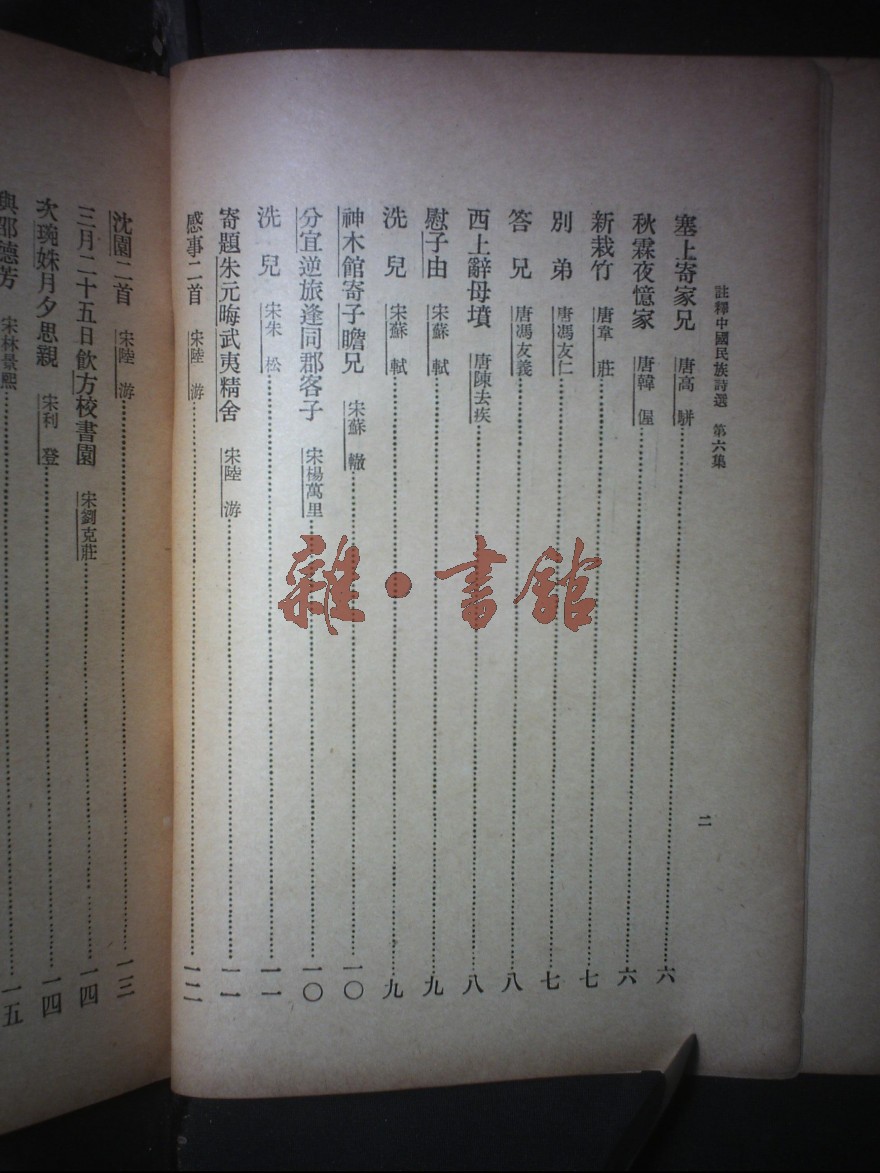 註釋中國民族詩選 第六集
二
塞上寄家兄 唐高駢 六
秋霖夜憶家 唐韓偓 六
新栽竹 唐韋莊 七
別弟 唐馮友仁 七
答兄 唐馮友義 八
西上辭母墳 唐陳去疾 八
慰子由 宋蘇軾 九
洗兒 宋蘇軾 九
神木館寄子瞻兄 宋蘇轍 一〇
分宜逆旅逢同郡客子 宋楊萬里 一〇
洗兒 宋朱松 一一
寄題朱元晦武夷精舍 宋陸游 一一
感事二首 宋陸游 一二
沈園二首 宋陸游 一三
三月二十五日飲方校書園 宋劉克莊 一四
次琬妹月夕思親 宋利登 一四
與邵德芳 宋林景熙 一五
雜·書館